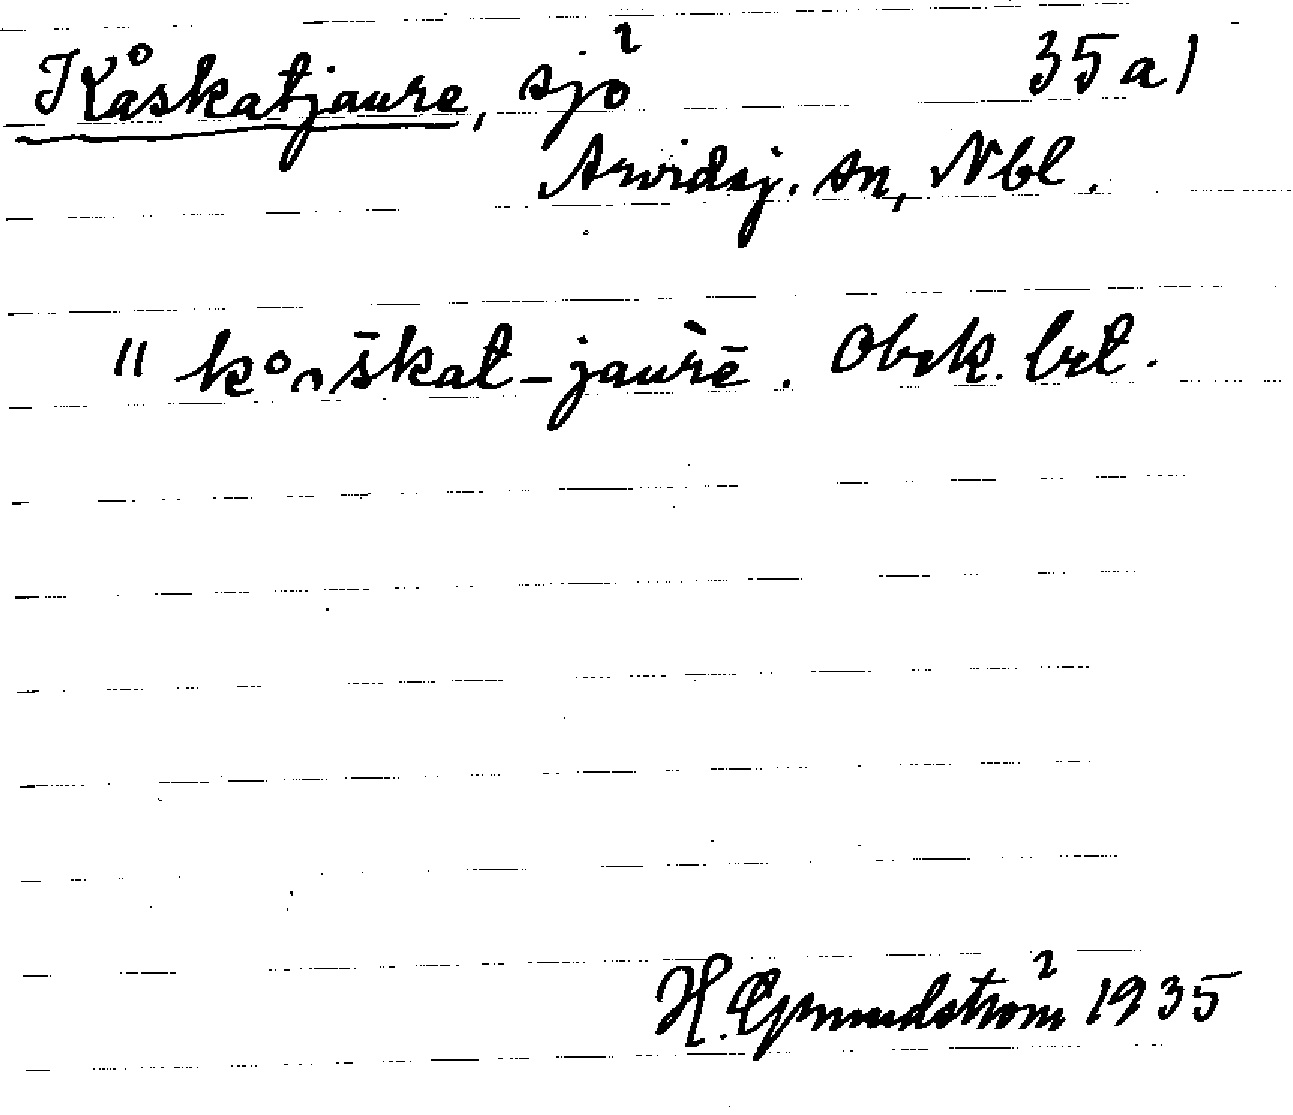 Kåskatjaure, sjö 35 a)
Arvidsj. sn, Nbl.
" škat-jaurē. Obek. bet.
H. Grundström 1935